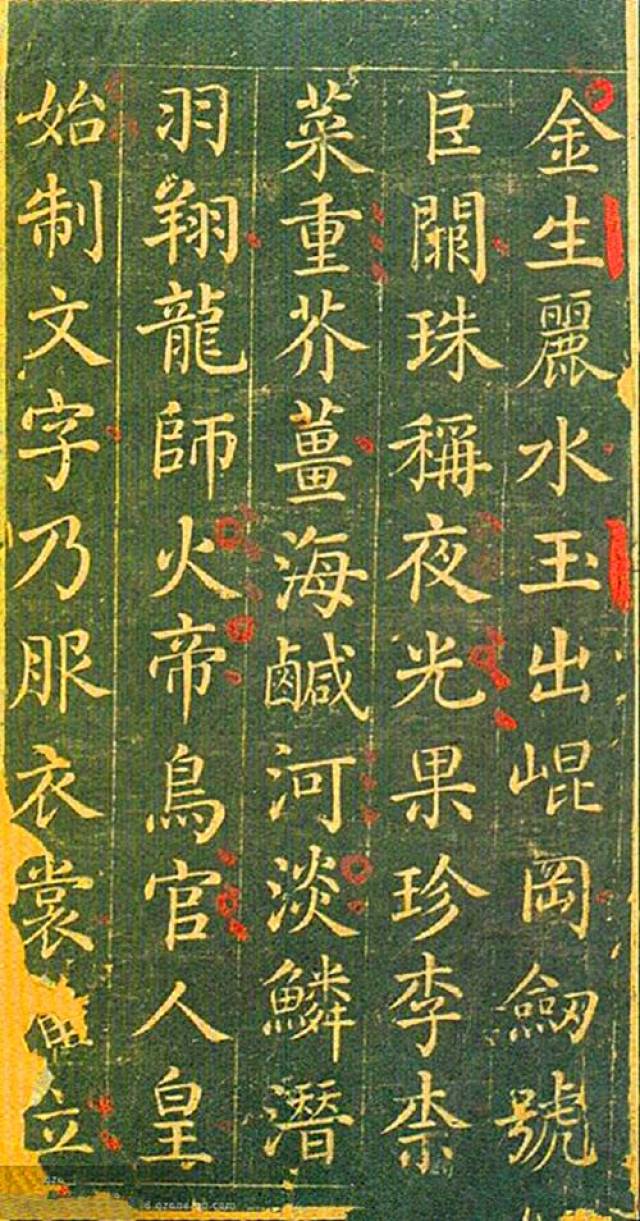 金生麗水玉出崐岡劔號
巨闕珠稱夜光果珍李柰
菜重芥薑海鹹河淡鱗潛
羽翔龍師火帝鳥官人皇
始制文字乃服衣裳 立